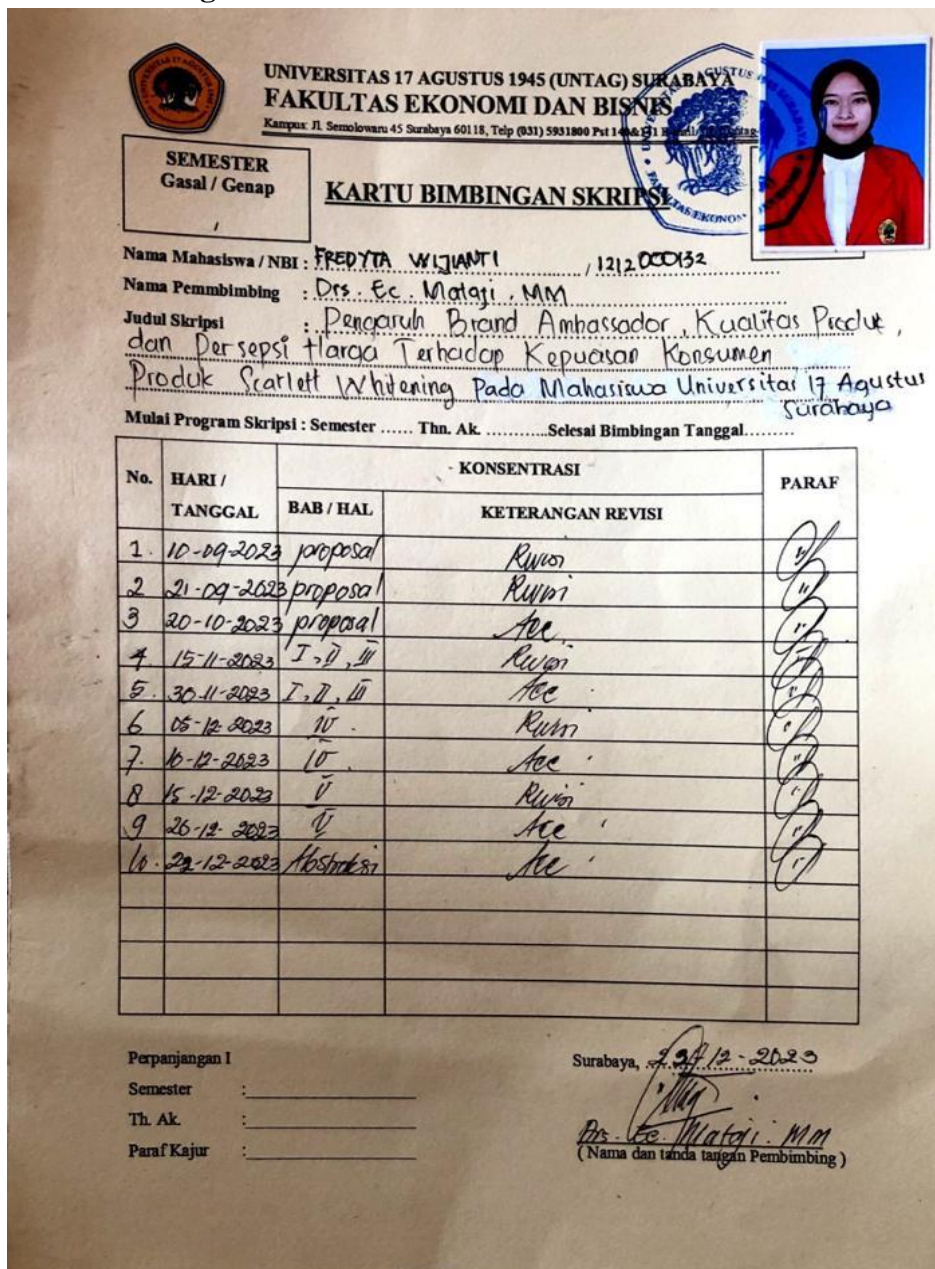 UNIVERSITAS 17 AGUSTUS 1945 (UNTAG) SURABAYA
FAKULTAS EKONOMI DAN BISNIS
Kampus: Jl. Semolowaru 45 Surabaya 60118, Telp (031) 5931800 Pst
SEMESTER
Gasal / Genap
/
KARTU BIMBINGAN SKRIPSI
Nama Mahasiswa / NBI : FREDYTA WIJIANTI / 1212000132
Nama Pemmbimbing : Drs. Ec. Mataji, MM
Judul Skripsi : Pengaruh Brand Ambassador, Kualitas Produk,
dan Persepsi Harga Terhadap Kepuasan Konsumen
Produk Scarlett Whitening Pada Mahasiswa Universitas 17 Agustus
Surabaya
Mulai Program Skripsi : Semester ...... Thn. Ak. ............Selesai Bimbingan Tanggal.........
No. HARI / TANGGAL KONSENTRASI PARAF
BAB / HAL KETERANGAN REVISI
1. 10-09-2023 proposal Revisi
2 21-09-2023 proposal Revisi
3 20-10-2023 proposal Acc
4. 15-11-2023 I, II, III Revisi
5. 30-11-2023 I, II, III Acc
6 05-12-2023 IV. Revisi
7. 10-12-2023 IV. Acc
8 15-12-2023 V Revisi
9 26-12-2023 V Acc
10. 29-12-2023 Abstraksi Acc
Perpanjangan I
Semester :
Th. Ak. :
Paraf Kajur :
Surabaya, 12-2023
Drs. Ec. Mataji. MM
( Nama dan tanda tangan Pembimbing )